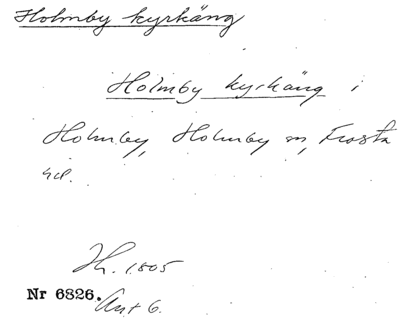 Holmby kyrkäng
Holmby kyrkäng i
Holmby, Holmby sn, Frosta
hd.
Th. 1805
Nr 6826.
Ant 6.